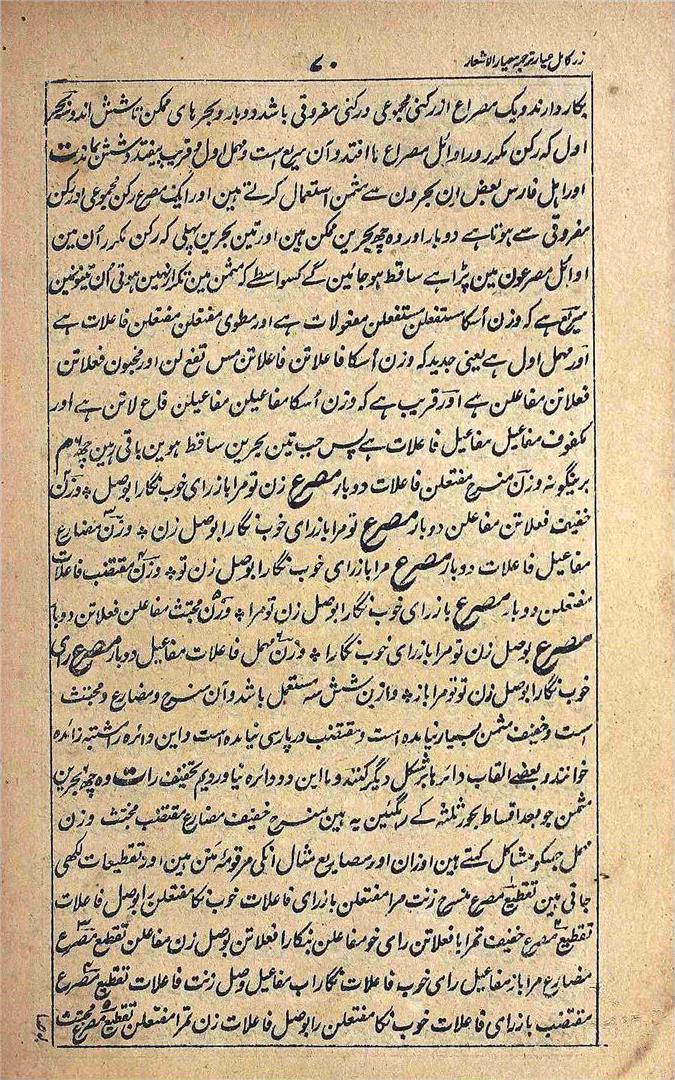 زر کامل عیار ترجمہ معیار الاشعار
۷۰
بکار دارند و یک مصراع از رکنی مجموعی و رکنی مفروقی باشد دو بار و بحرهای ممکن تا شش اند و سہ بحر
اول که رکن مکرر در اوائل مصراع ها افتد و آن سریع است و مهمل اول و قریب بیفتد و شش بماند ت
اور اہل فارس بعض ان بحرون سے مثمن استعمال کرتے ہین اور ایک مصرع رکن مجموعی اور رکن
مفروقی سے ہوتا ہے دو بار اور وہ چھ بحرین ممکن ہین اور تین بحرین پہلی کہ رکن مکرر اُن مین
اوائل مصرعون مین پڑا ہے ساقط ہو جائین گے کسواسطے کہ مثمن مین تکرار نہین ہوتی اُن تینون مین
سریع ہے کہ وزن اُسکا مستفعلن مستفعلن مفعولات ہے اور مطوی مفتعلن مفتعلن فاعلات ہے
اور مہمل اول ہے یعنی جدید کہ وزن اُسکا فاعلاتن فاعلاتن مس تفع لن اور مخبون فعلاتن
فعلاتن مفاعلن ہے اور قریب ہے کہ وزن اُسکا مفاعیلن مفاعیلن فاع لاتن ہے اور
مکفوف مفاعیل مفاعیل فاعلات ہے پس جب تین بحرین ساقط ہوین باقی رہین چھ م
برینگونه وزن منسرح مفتعلن فاعلات دوبار مصرع زن تو مرا باز رای خوب نگارا بوصل ❊ وزن
خفیف فعلاتن مفاعلن دوبار مصرع تو مرا باز رای خوب نگارا بوصل زن ❊ وزن مضارع
مفاعیل فاعلات دوبار مصرع مرا باز رای خوب نگارا بوصل زن تو ❊ وزن مقتضب فاعلات
مفتعلن دوبار مصرع باز رای خوب نگارا بوصل زن تو مرا ❊ وزن مجتث مفاعلن فعلاتن دوبار
مصرع بوصل زن تو مرا باز رای خوب نگارا ❊ وزن مهمل فاعلات مفاعیل دوبار مصرع رای
خوب نگارا بوصل زن تو مرا باز ❊ و ازین شش سه مستعمل باشد و آن منسرح و مضارع و مجتث
است و خفیف مثمن بسیار نیامده است و مقتضب در پارسی نیامده است و این دائره را مشتبه زائده
خوانند و بعضے القاب دائرها بر شکل دیگر کنند و ما این دو دائره نیاوردیم تخفیف را ت وہ چھ بحرین
مثمن جو بعد اسقاط بحور ثلثہ کے رہگئین یہ ہین منسرح خفیف مضارع مقتضب مجتث وزن
مہمل جسکو مشاکل کہتے ہین اوزان اور مصاریع مثال انکی مرقومۂ متن ہین اور تقطیعات لکھی
جاتی ہین تقطیع مصرع منسرح زنت مرا مفتعلن باز رای فاعلات خوب نکا مفتعلن را بوصل فاعلات
تقطیع مصرع خفیف تمرا با فعلاتن زرای خو مفاعلن بنکارا فعلاتن بوصل زن مفاعلن تقطیع مصرع
مضارع مرا باز مفاعیل رای خوب فاعلات نگاراب مفاعیل وصل زنت فاعلات تقطیع مصرع
مقتضب باز رای فاعلات خوب نکا مفتعلن را بوصل فاعلات زن تمرا مفتعلن تقطیع مصرع مجتث